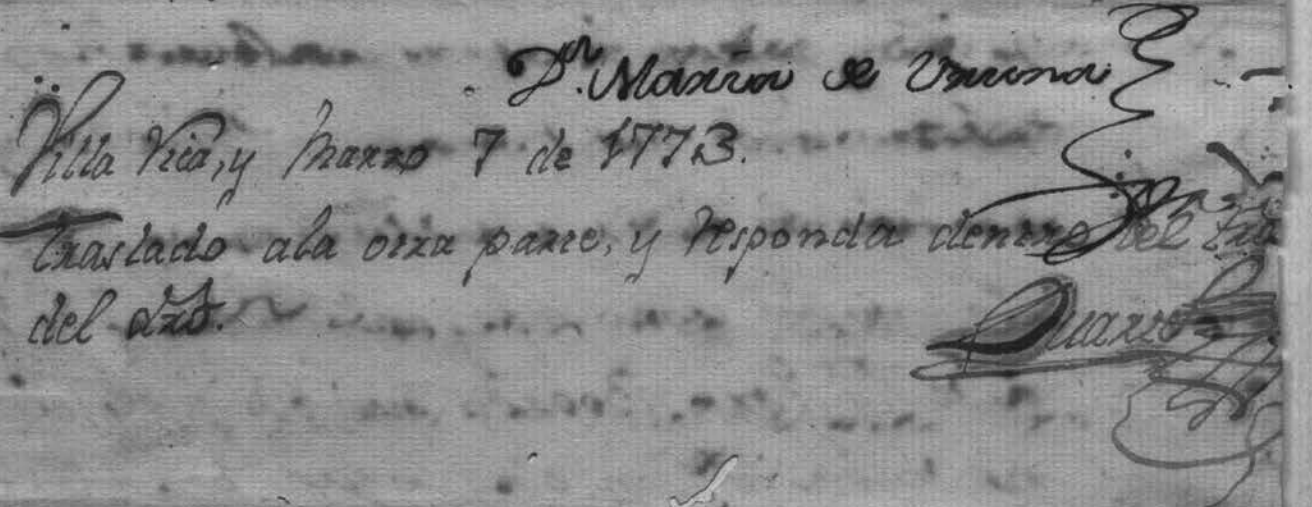 Dn. Maria de Umuna
Villa Rica, y Marzo 7 de 1773.
Traslado ala otra parte, y responda dentro del
del dro.
Duarte